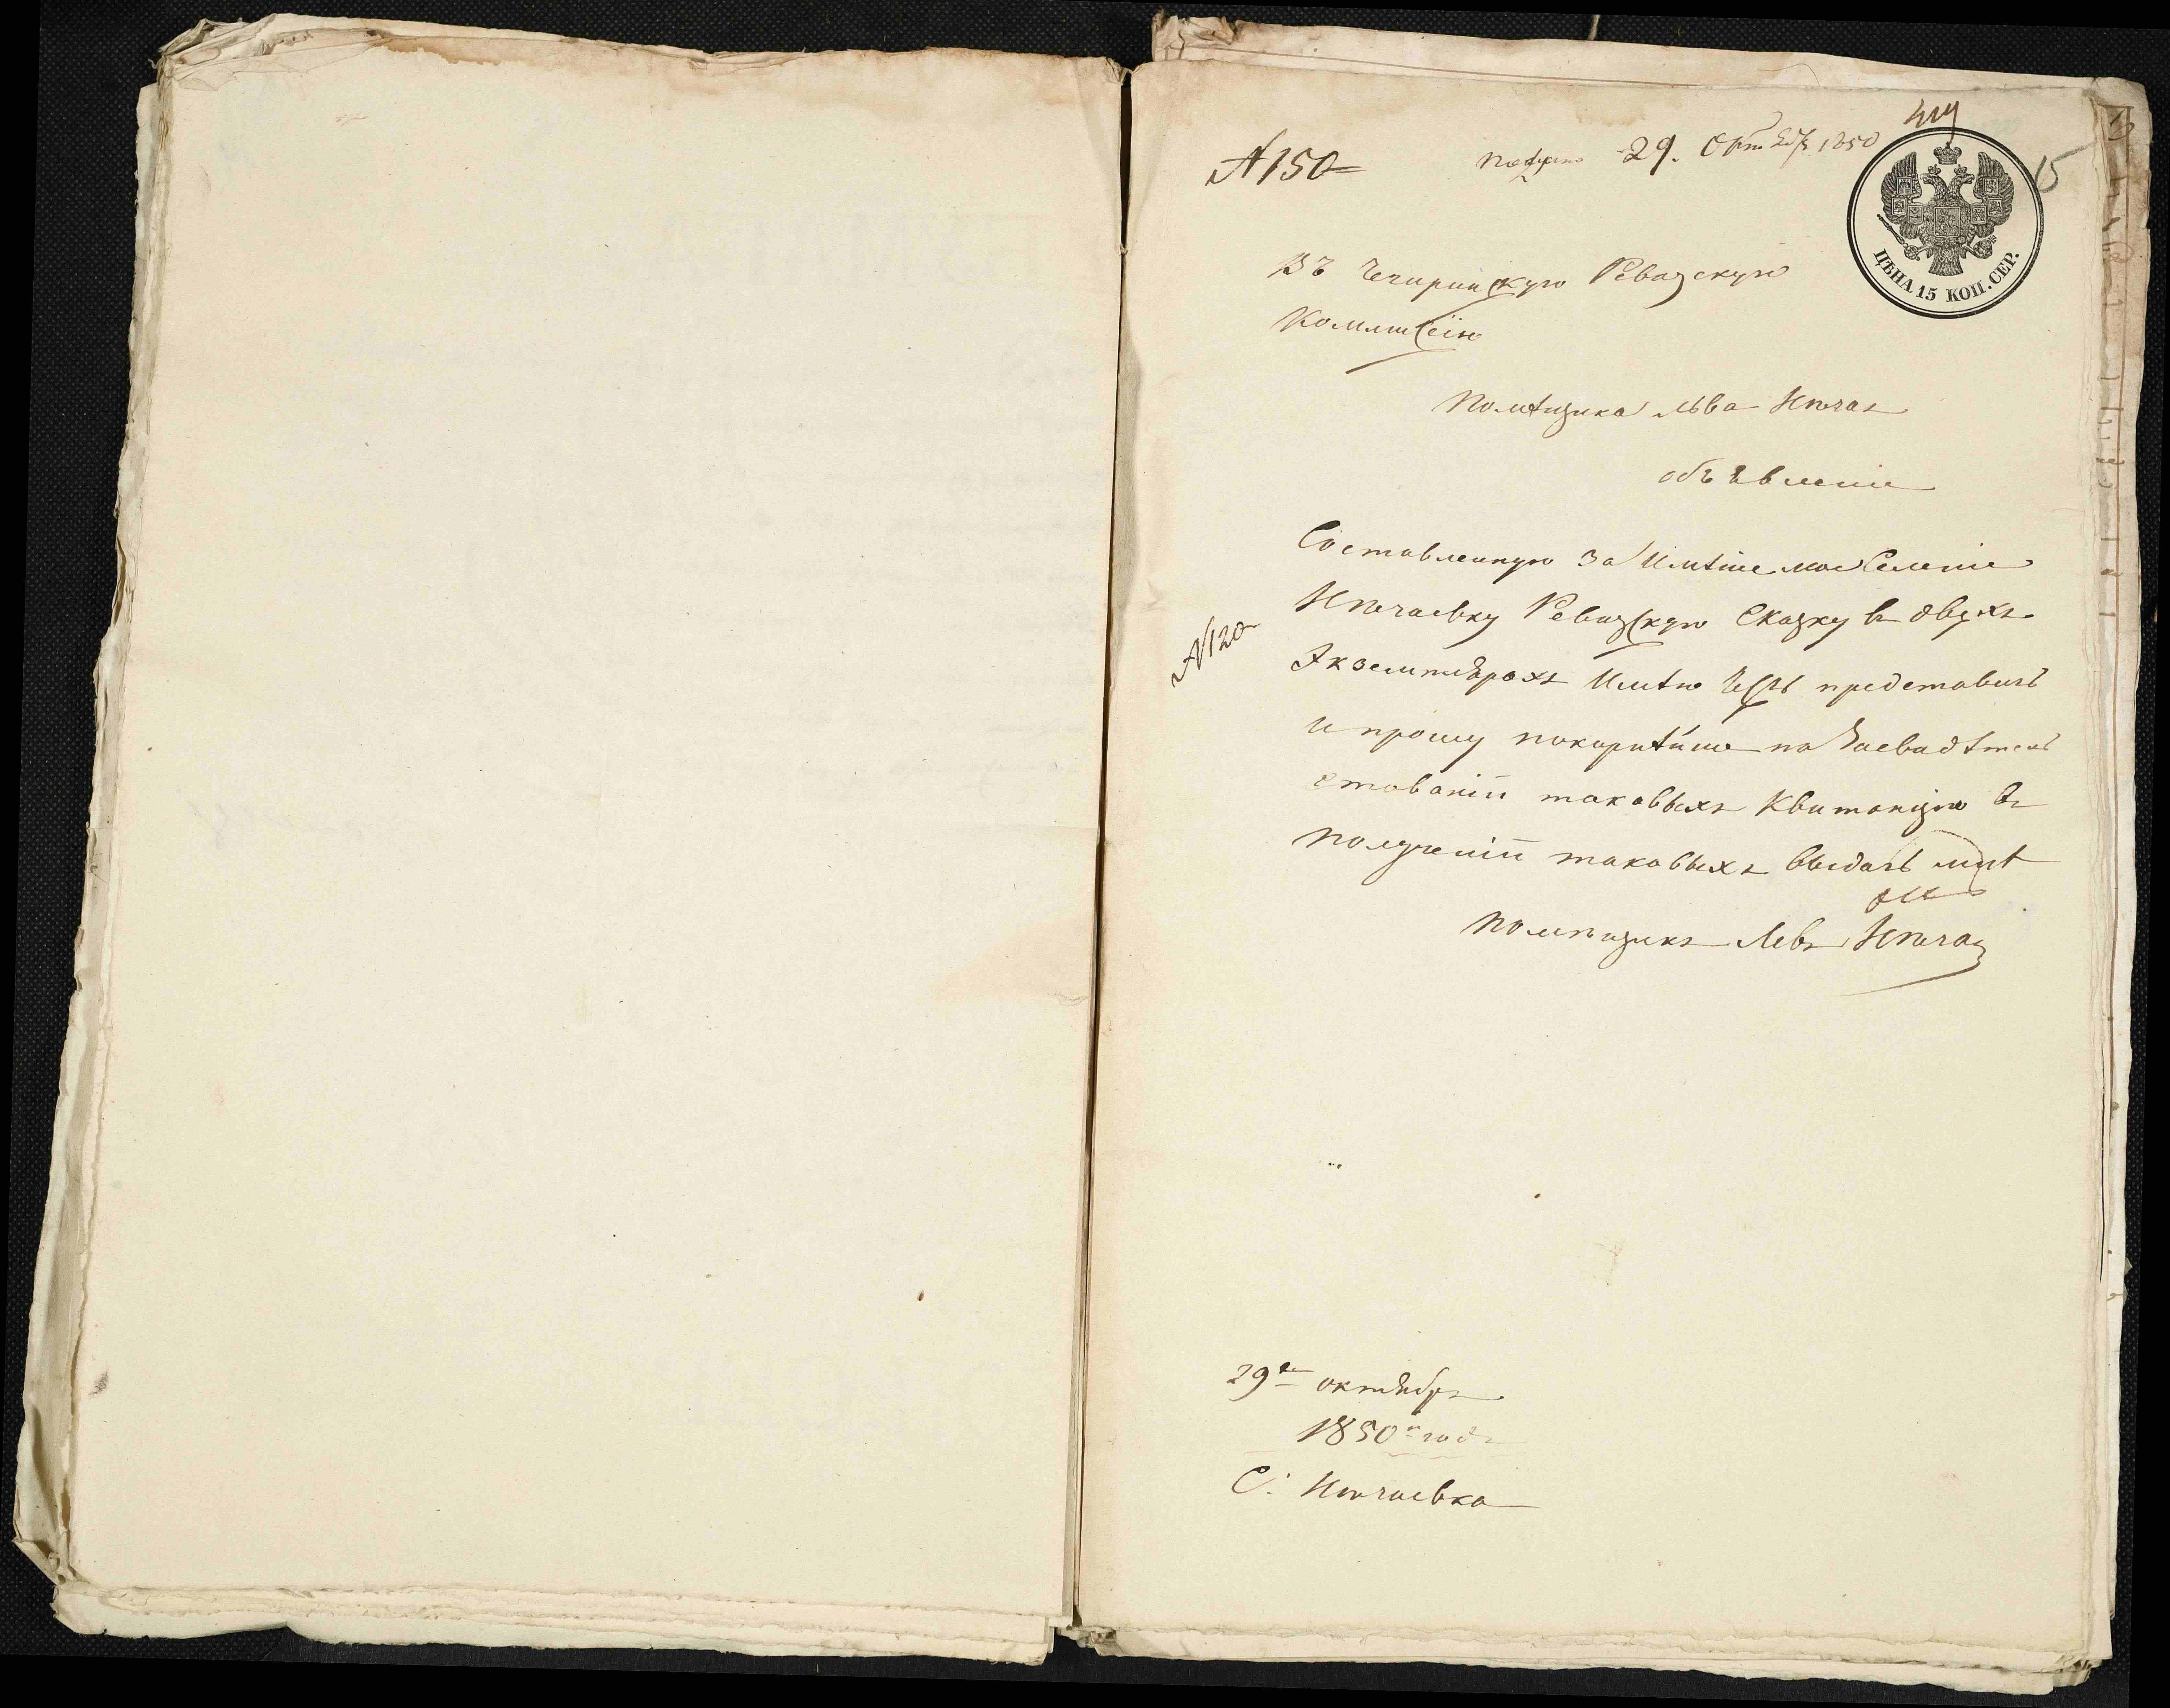 N 150
получено 29. Октября 1850
ЦѢНА 15 КОП. СЕР.
15
Въ Чегиринскую Ревизскую
Коммисеію
Помѣщика Льва
объявленіе
Составленную За Имѣніе мое Селеніе
Ревизскую Сказку въ двухъ
N 120
Экземплярахъ Имѣю Честь представить
и прошу покорнѣйше по Засвадѣтель
ствованіи таковыхъ Квитанцію въ
полученіи таковыхъ выдать мнѣ
Помѣщикъ Левъ
29го октября
1850го года
С.